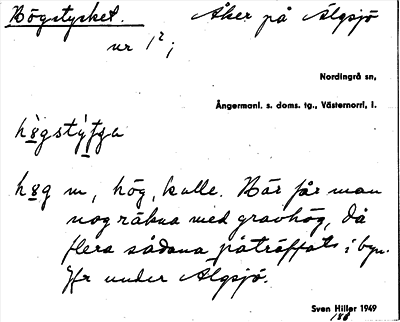 Högstycket. Åker på Älgsjö
nr 1²;
Nordingrå sn,
Ångermanl. s. doms. tg., Västernorrl. l.
hø̀gstýʃga
høg m, hög, kulle. Här får man
nog räkna med gravhög, då
flera sådana påträffats i byn.
Jfr under Älgsjö.
Sven Hiller 1949